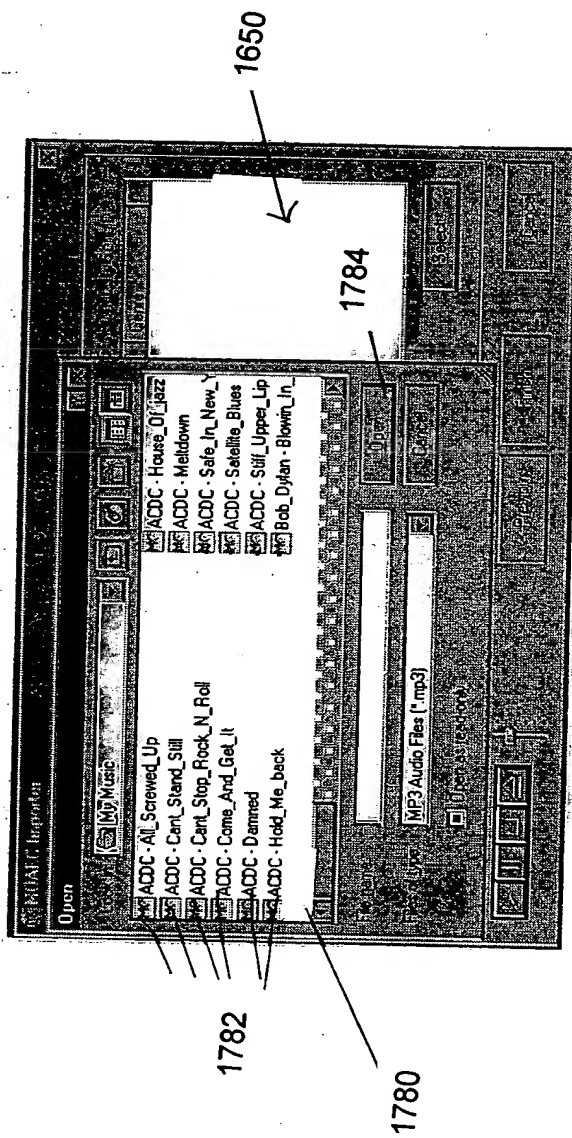 Importer
Open
My Music
ACDC - All_Screwed_Up
ACDC - Cant_Stand_Still
ACDC - Cant_Stop_Rock_N_Roll
ACDC - Come_And_Get_It
ACDC - Damned
ACDC - Hold_Me_back
ACDC - House_Of_jazz
ACDC - Meltdown
ACDC - Safe_In_New_Y
ACDC - Satellite_Blues
ACDC - Stiff_Upper_Lip
Bob_Dylan - Blowin_In_
File name:
Open
Files of type:
MP3 Audio Files (*.mp3)
Cancel
Open as read-only
Select
Previous
Finish
Cancel
1782
1780
1784
1650